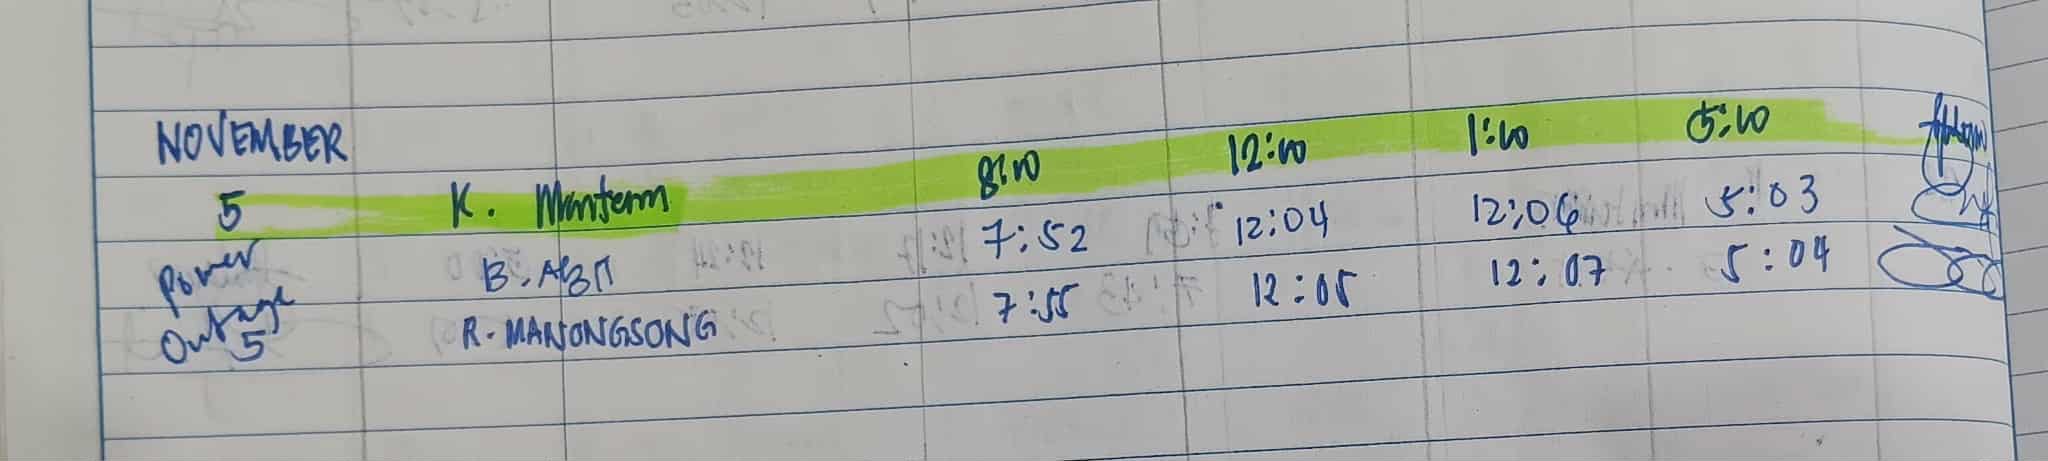 NOVEMBER
5 K. 8:00 12:00 1:00 5:00
Power B. 7:52 12:04 12:06 5:03
Outage
5 R. MANONGSONG 7:55 12:05 12:07 5:04